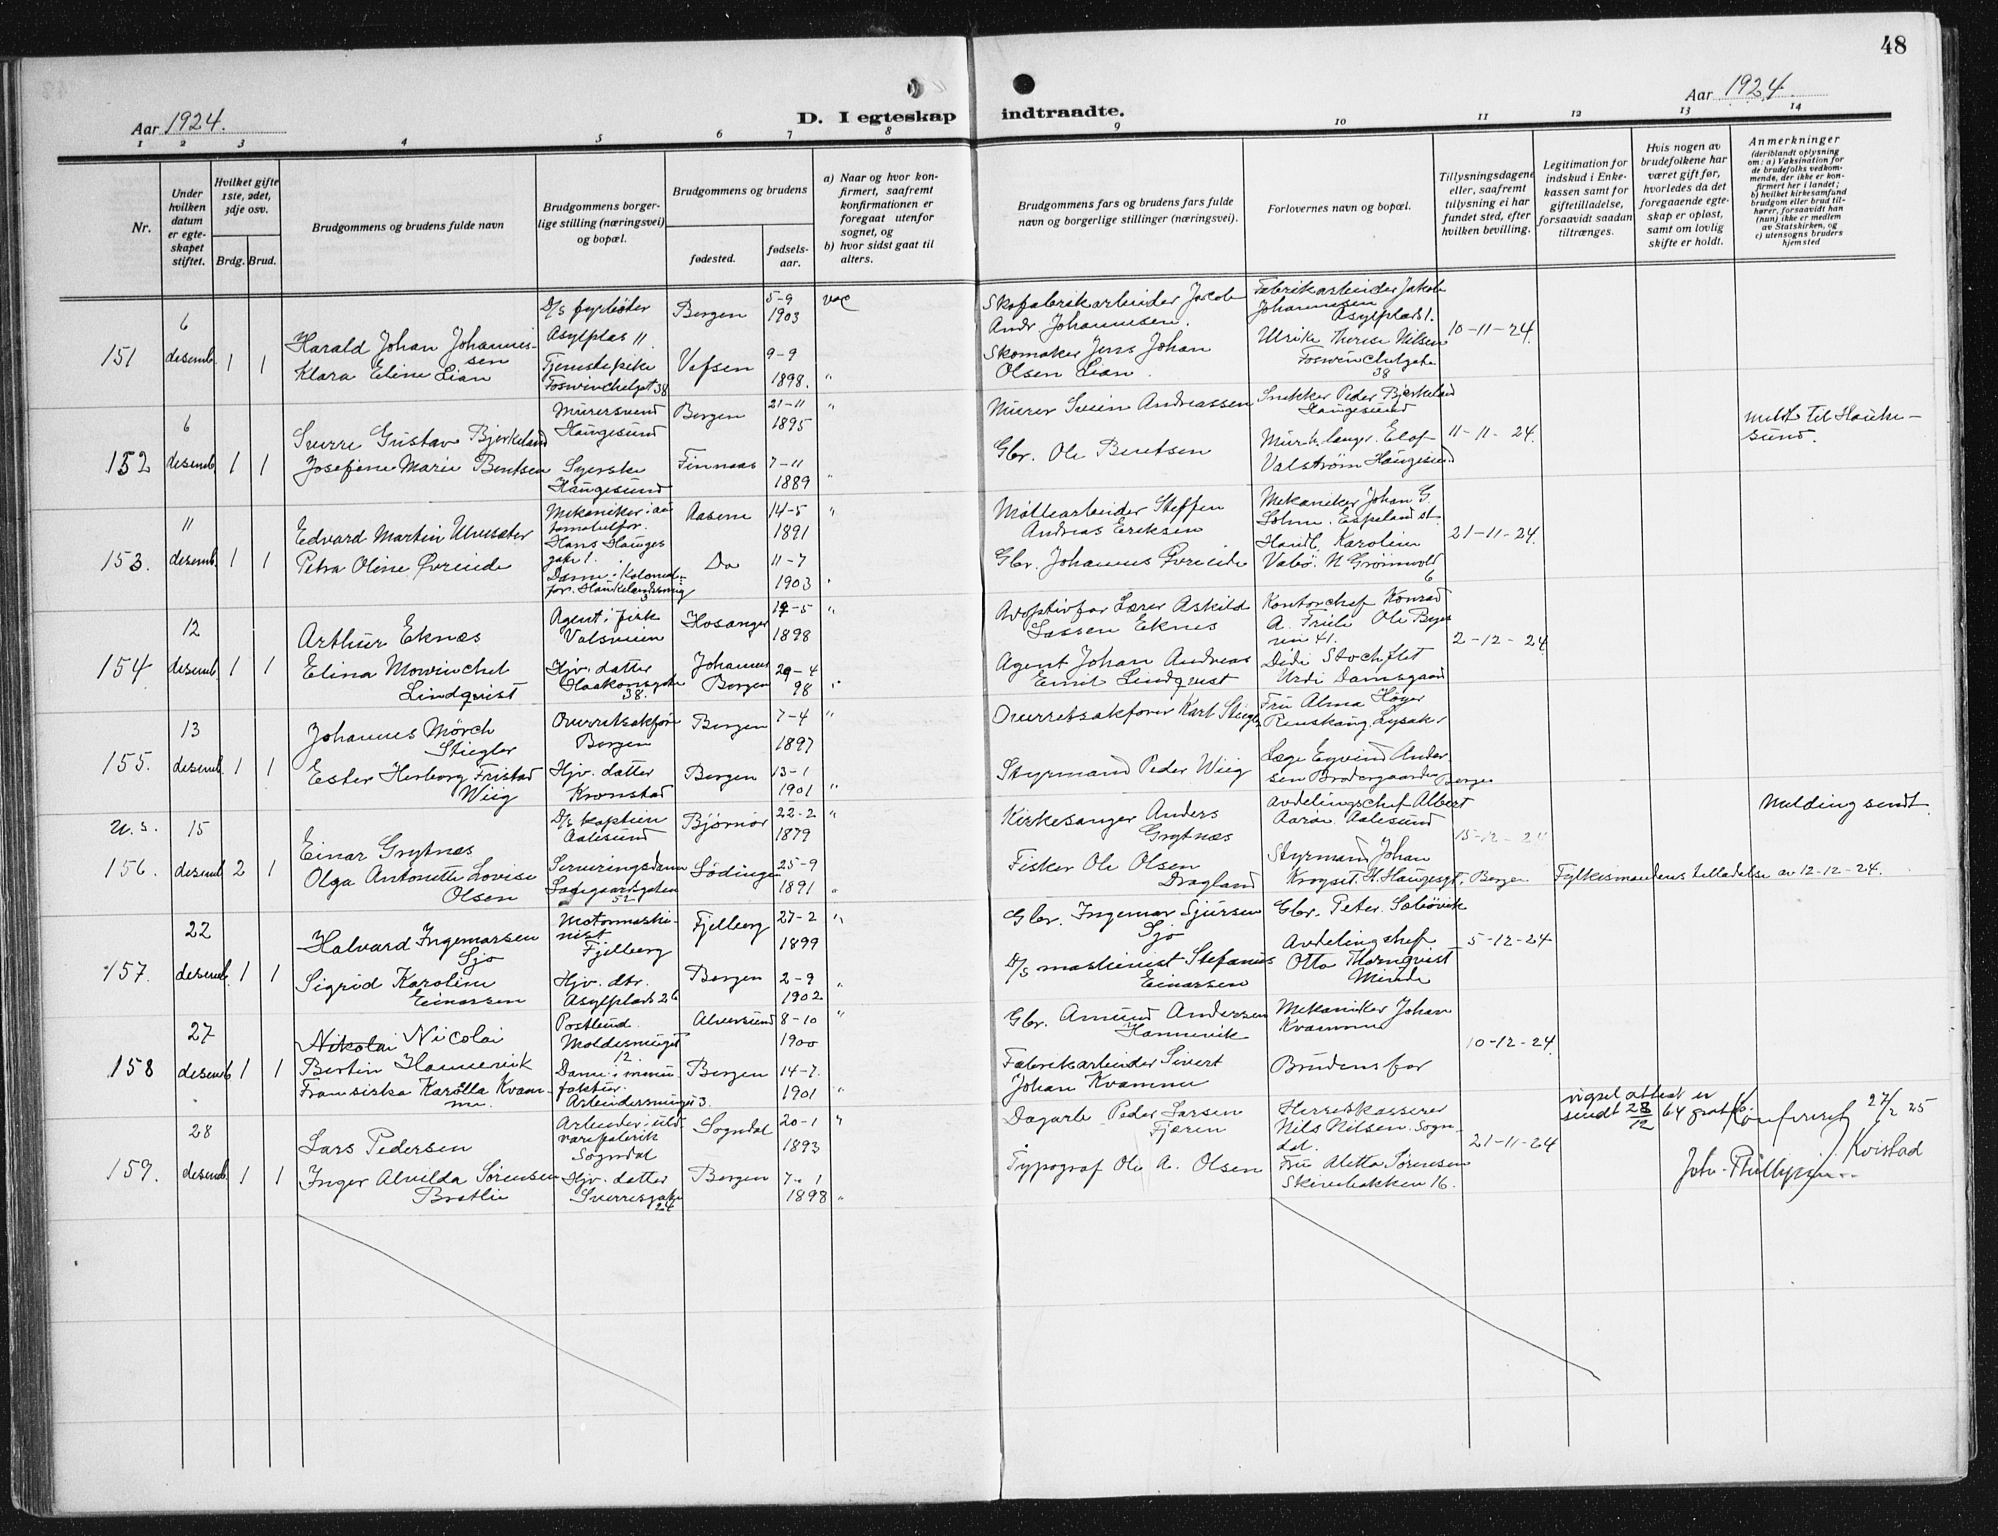 48
Aar 1924.
D. I egteskap indtraadte.
Aar 1924.
1 2 3 4 5 6 7 8 9 10 11 12 13 14
Nr.
Under hvilken datum er egte-skapet stiftet.
Hvilket gifte 1ste, 2det, 3dje osv.
Brdg. Brud.
Brudgommens og brudens fulde navn
Brudgommens borger-lige stilling (næringsvei) og bopæl.
Brudgommens og brudens
fødested.
fødsels-aar.
a) Naar og hvor kon-firmert, saafremt konfirmationen er foregaat utenfor sognet, og
b) hvor sidst gaat til alters.
Brudgommens fars og brudens fars fulde navn og borgerlige stillinger (næringsvei).
Forlovernes navn og bopæl.
Tillysningsdagene eller, saafremt tillysning ei har fundet sted, efter hvilken bevilling.
Legitimation for indskud i Enke-kassen samt for giftetilladelse, forsaavidt saadan tiltrænges.
Hvis nogen av brudefolkene har været gift før, hvorledes da det foregaaende egte-skap er opløst, samt om lovlig skifte er holdt.
Anmerkninger
(deriblandt oplysning om: a) Vaksination for de brudefolks vedkom-mende, der ikke er kon-firmert her i landet; b) hvilket kirkesamfund brudgom eller brud til-hører, forsaavidt han (hun) ikke er medlem av Statskirken, og c) utensogns bruders hjemsted
151
6
desemb. 1 1
Harald Johan Johannes-
sen
Klara Eline Lian
D/s fyrbøter
Asylplas 11
Tjenestepike
Foswinckelsgt 38
Bergen
Vefsen
5-9
1903
9-9
1898.
vac
"
Skofabrikarbeider Jacob
Andr. Johannesen.
Skomaker Jens Johan
Olsen Lian.
Fabrikarbeider Jakob
Johannesen
Asylplads 1.
Ulrike Therese Nilsen
Foswinckelgate
38
10-11-24.
152
6
desemb. 1 1
Sverre Gustav Bjerkeland
Josefine Marie Bentsen
Murersvend
Haugesund
Syerske
Haugesund
Bergen
Finnaas
21-11
1895
7-11
1889
"
"
Murer Svein Andreassen
Gbr. Ole Bentsen
Snekker Peder Bjerkeland
Haugesund
Murh.langer. Elof
Valstrøm Haugesund
11-11-24.
meldt til Hauke-
sund.
153.
11
desemb. 1 1
Edvard Martin Ulvesæter
Petra Oline Øvreeide
Mekaniker i au
tomobilfor.
Hans Hauges
gate 1.
Dame i Kolonial-
for. Haukelandsveig
3
Aasene
Do
14-5
1891
11-7
1903
"
Møllearbeider Steffen
Andreas Eriksen
Gbr. Johannes Øvreeide
Mekaniker Johan G.
Lohne. Espeland st.
Handl. Karoline
Valbø. N Grønevold
6
21-11-24.
154
12
desemb. 1 1
Arthur Eknæs
Elina Mowinckel
Lindqvist
Agent i firk
Valsveien
Hjv. datter
Haakonsgate
38.
Hosanger
Johannes
Bergen
19-5
1898
29-4
98
"
"
Adoptivfar Lærer Askild
Lassen Eknes
Agent Johan Andreas
Emil Lindqvist
Kontorchef Konrad
A. Friele Ole Bulls
vei 41.
Didi Stockflet
Urdi Damsgaard
2-12-24.
155.
13
desemb. 1 1
Johannes Mörch
Stiegler
Ester Herborg Fristad
Wiig
Overretsakfører
Bergen
Hjv. datter
Kronstad
Bergen
Bergen
7-4
1897
13-1
1901
"
"
Overretsakfører Karl Stiegler
Styrmand Peder Wiig
Fru Alma Høyer
Renskaug. Lysaker
Læge Eyvind Ander
sen Brødregaarden
Bergen
u.s.
156.
15
desemb 2 1
Einar Grytnæs
Olga Antonette Lovise
Olsen
D/s kaptein
Aalesund
Serveringsdame
Ladegaardsgaten
52
Bjørnør
Lødingen
22-2
1879
25-9
1891
"
"
Kirkesanger Anders
Grytnæs
Fisker Ole Olsen
Dragland
Avdelingschef Albert
Aarøe Aalesund
Styrmand Johan
Krogset. H. Haugesgt. Bergen
15-12-24
Fylkesmandens tilladelse av 12-12-24.
Melding sendt.
157.
22
desemb. 1 1
Halvard Ingemarsen
Sjo
Sigrid Karoline
Einarsen
Motormaski-
nist
Fjelberg
Hjv. dtr.
Asylplads 26
Fjelberg
Bergen
27-2
1899
2-9
1902
"
"
Gbr. Ingemar Sjursen
Sjo
D/s maskinist Stefanius
Einarsen
Gbr. Peter Sæbövik
Avdelingschef
Otto Thornqvist
Minde
5-12-24
158
27
desemb 1 1
Nikolai Nicolai
Bertin Hannevik
Fransiska Karolla Kvam-
me.
Postbud.
Moldesmuget
12.
Dame i manu-
faktur.
Arbeidersmuget 3.
Alversund
Bergen
8-10
1900
14-7
1901
"
"
Gbr. Amund Andersen
Hannevik
Fabrikarbeider Sivert
Johan Kvamme
Mekaniker Johan
Kvamme
Brudens far
10-12-24.
159.
28
desemb. 1 1
Lars Pedersen
Inger Alvilda Sørensen
Bratlie
Arbeider uld-
varefabrik
Sogndal
Hjv. datter
Sverresgate
24
Sogndal
Bergen
20-1
1893
7-1
1898
"
"
Dagarb. Peder Larsen
Fjæren
Typograf Ole A. Olsen
Herredskasserer
Nils Nilsen. Sogn-
dal.
Fru Aletta Sørensen
Skivebakken 16.
21-11-24
vigsel attest er
sendt 28/12 64 gratis.
Konfereret 27/2 25
Kvistad
Joh. Phillipsen